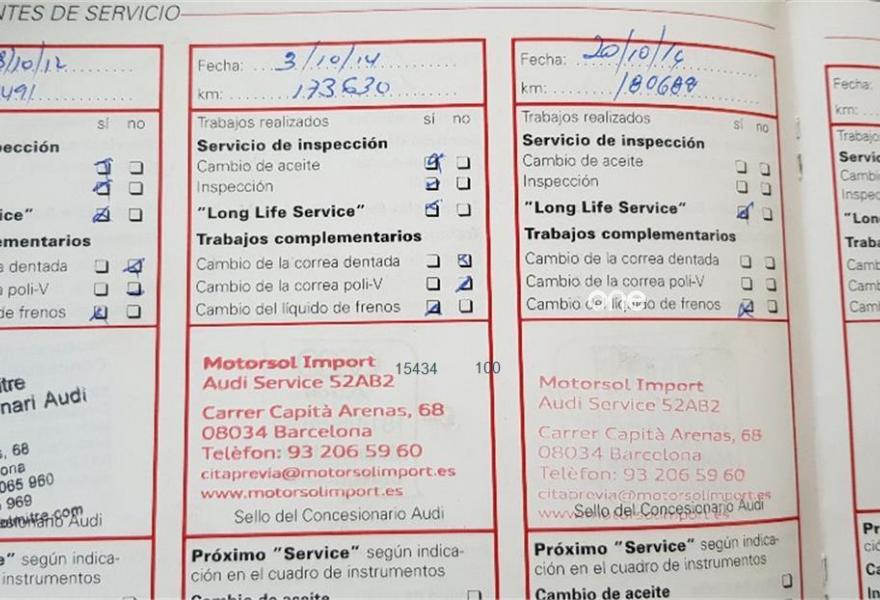 NTES DE SERVICIO
/10/12
491
sí no
pección
ice"
ementarios
a dentada
a poli-V
de frenos
itre
nari Audi
s, 68
ona
065 960
969
Audi
e" según indica-
instrumentos
Fecha: 3/10/14
km: 173630
Trabajos realizados sí no
Servicio de inspección
Cambio de aceite
Inspección
"Long Life Service"
Trabajos complementarios
Cambio de la correa dentada
Cambio de la correa poli-V
Cambio del líquido de frenos
Motorsol Import
Audi Service 52AB2
Carrer Capità Arenas, 68
08034 Barcelona
Telèfon: 93 206 59 60
citaprevia@motorsolimport.es
www.motorsolimport.es
Sello del Concesionario Audi
15434 100
Próximo "Service" según indica-
ción en el cuadro de instrumentos
Cambio de aceite
Fecha: 20/10/16
km: 180688
Trabajos realizados sí no
Servicio de inspección
Cambio de aceite
Inspección
"Long Life Service"
Trabajos complementarios
Cambio de la correa dentada
Cambio de la correa poli-V
Cambio del líquido de frenos
one
Motorsol Import
Audi Service 52AB2
Carrer Capità Arenas, 68
08034 Barcelona
Telèfon: 93 206 59 60
citaprevia@motorsolimport.es
www.motorsolimport.es
Sello del Concesionario Audi
Próximo "Service" según indica-
ción en el cuadro de instrumentos
Cambio de aceite
Fecha:
km:
Trabajo
Servic
Cambi
Inspec
"Lon
Traba
Camb
Camb
Cambi
Pr
ció
Ca
In